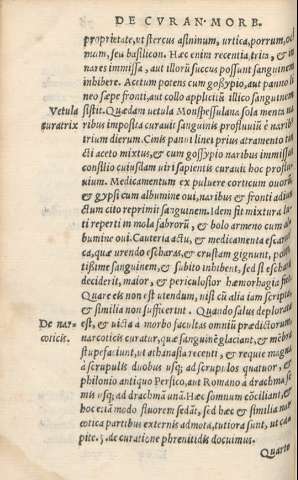 DE CVRAN. MORB.
proprietate, ut stercus asininum, urtica, porrum, oci
mum, seu basilicon. Hæc enim recentia, trita, &
nares immissa, aut illorũ succus possunt sanguinem
inhibere. Acetum potens cum gossypio, aut panno li
neo sæpe fronti, aut collo applicitũ illico sanguinem
Vetula curatrix
sistit. Quædam uetula Monspessulana sola menta
ribus imposita curauit sanguinis profluuiũ è nari
trium dierum. Cinis panni linei prius atramento
cti aceto mixtus, & cum gossypio naribus immissus
consilio cuiusdam uiri sapientis curauit hoc proflu
uium. Medicamentum ex puluere corticum ouorũ
& gypsi cum albumine oui, naribus & fronti
ctum cito reprimit sanguinem. Idem fit mixtura
ti reperti in mola fabrorũ, & bolo armeno cum al
bumine oui. Cauteria actu, & medicamenta escaroti
ca, quæ urendo escharas, & crustam gignunt,
tißime sanguinem, & subito inhibent, sed si eschara
deciderit, maior, & periculosior hæmorhagia
Quare eis non est utendum, nisi cũ alia iam scripta,
& similia non suffecerint. Quando salus deplorata
De narcoticis.
est, & uicta à morbo facultas omniũ prædictorum
narcoticis curatur, quæ sanguinẽ glaciant, & mẽbra
stupefaciunt, ut athanasia recenti, & requie magna
à scrupulis duobus usq; ad scrupulos quatuor, &
philonio antiquo Persico, aut Romano à drachmæ se
mis usq; ad drachmã unã. Hæc somnum cõciliant, &
hoc etiã modo fluorem sedãt, sed hæc & similia nar
cotica partibus externis admota, tutiora sunt, ut ca
pite. 5. de curatione phrenitidis docuimus.
Quarto